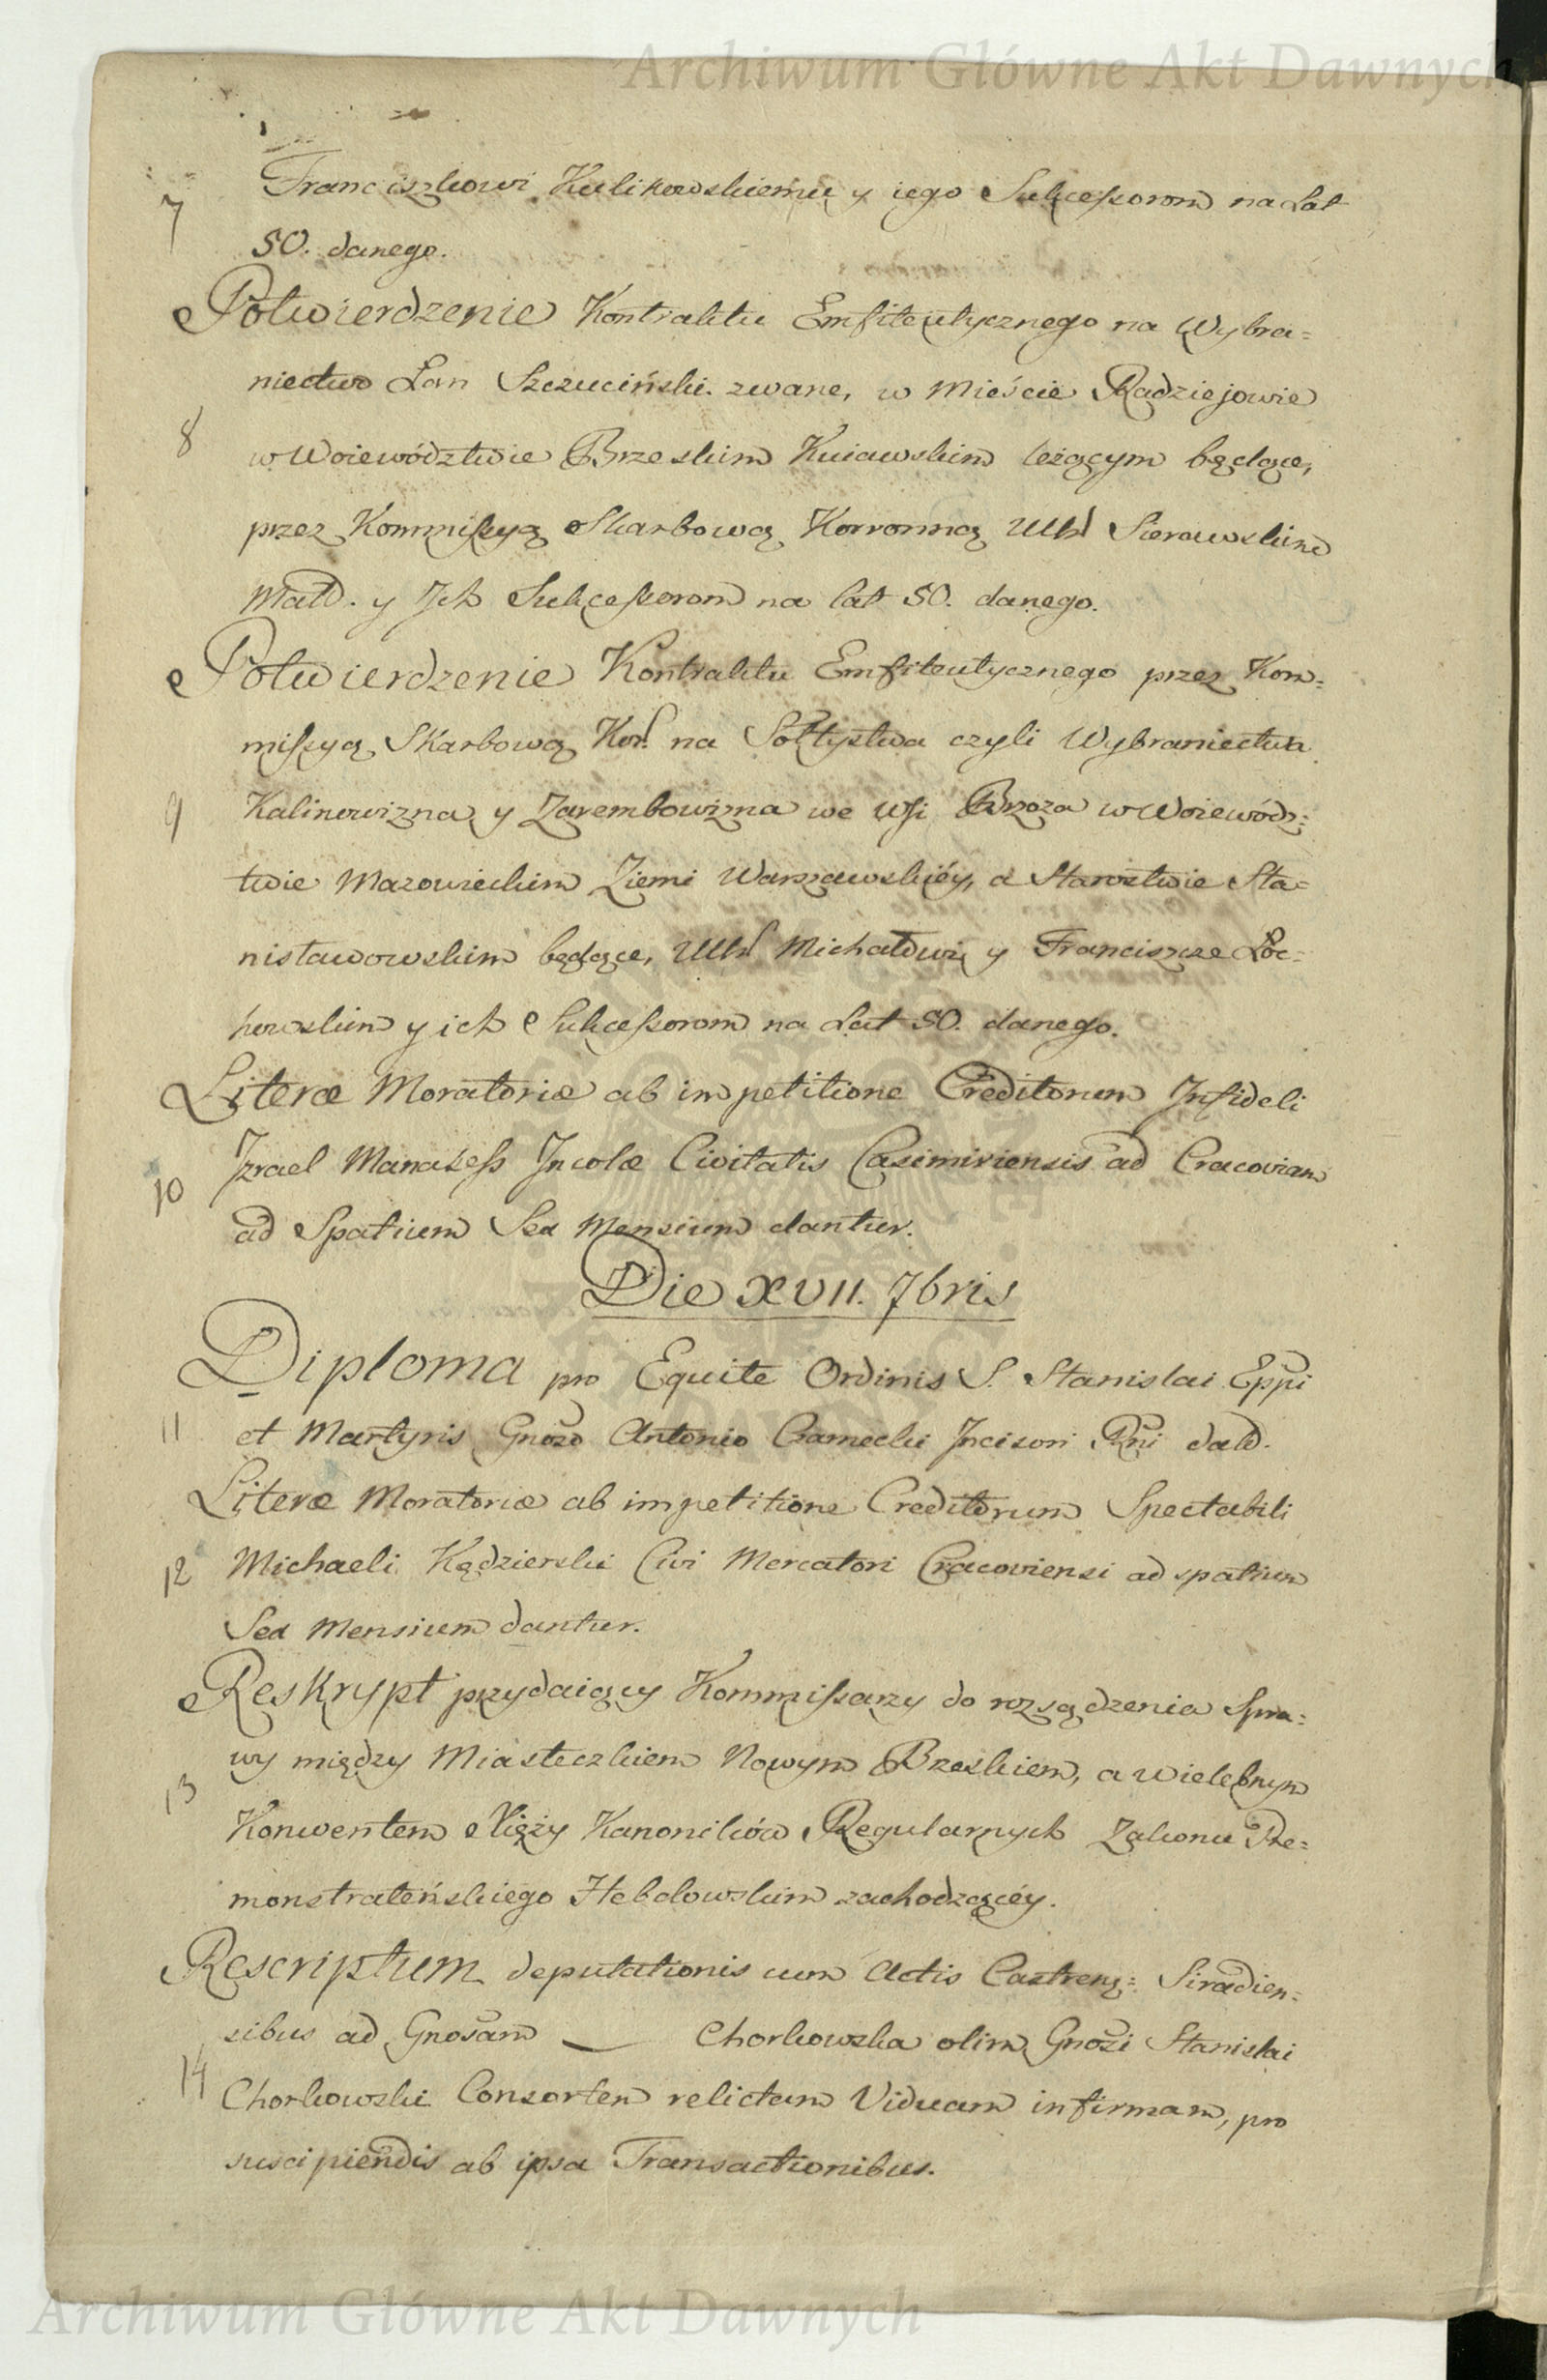 Archiwum Główne Akt Dawnych
7 Franciszkowi Kulikowskiemu y iego Sukceßorom na Lat
50. danego.
Potwierdzenie Kontraktu Emfiteutycznego na Wybra=
niectwo Łan Szczuciński zwane, w Mieście Radziejowie
8 w Woiewództwie Brzeskim Kuiawskim leżącym będące,
przez Kommißyą Skarbową Koronną Urd Sierawskim
Małż. y Ich Sukceßorom na lat 50. danego.
Potwierdzenie Kontraktu Emfiteutycznego przez Kom=
mißyą Skarbową Kor. na Sołtystwa czyli Wybraniectwa
9 Kalinowizna y Zarembowizna we Wsi Brzoza w Woiewódz=
twie Mazowieckim Ziemi Warszawskiéy, a Starostwie Sta=
nisławowskim będące, Michałowi y Franciszce Łoc=
howskim y ich Sukceßorom na Lat 50. danego.
Literæ Moratoriæ ab impetitione Creditorum Infideli
10 Izrael Manaseß Incolæ Civitatis Casimiriensis ad Cracoviam
ad Spatium Sex Mensium dantur.
Die XVII. 7bris
Diploma pro Equite Ordinis S. Stanislai Eppi
11 et Martyris Gnoso Antonio Czarnecki Incisori Rni datd.
Literæ Moratoriæ ab impetitione Creditorum Spectabili
12 Michaeli Kędzierski Civi Mercatori Cracoviensi ad spatium
Sex Mensium dantur.
Reskrypt przydaiący Kommißarzy do rozsądzenia Spra=
wy między Miasteczkiem Nowym Brzeskiem, a Wielebnym
13 Konwentem Xięży Kanoników Regularnych Zakonu Pre=
monstrateńskiego Hebdowskim zachodzącéy.
Rescriptum deputationis cum Actis Castrens: Siradien=
sibus ad Gnosam — Chorkowska olim Gnosi Stanislai
14 Chorkowski Consortem relictam Viduam infirmam, pro
suscipiendis ab ipsa Transactionibus.
Archiwum Główne Akt Dawnych